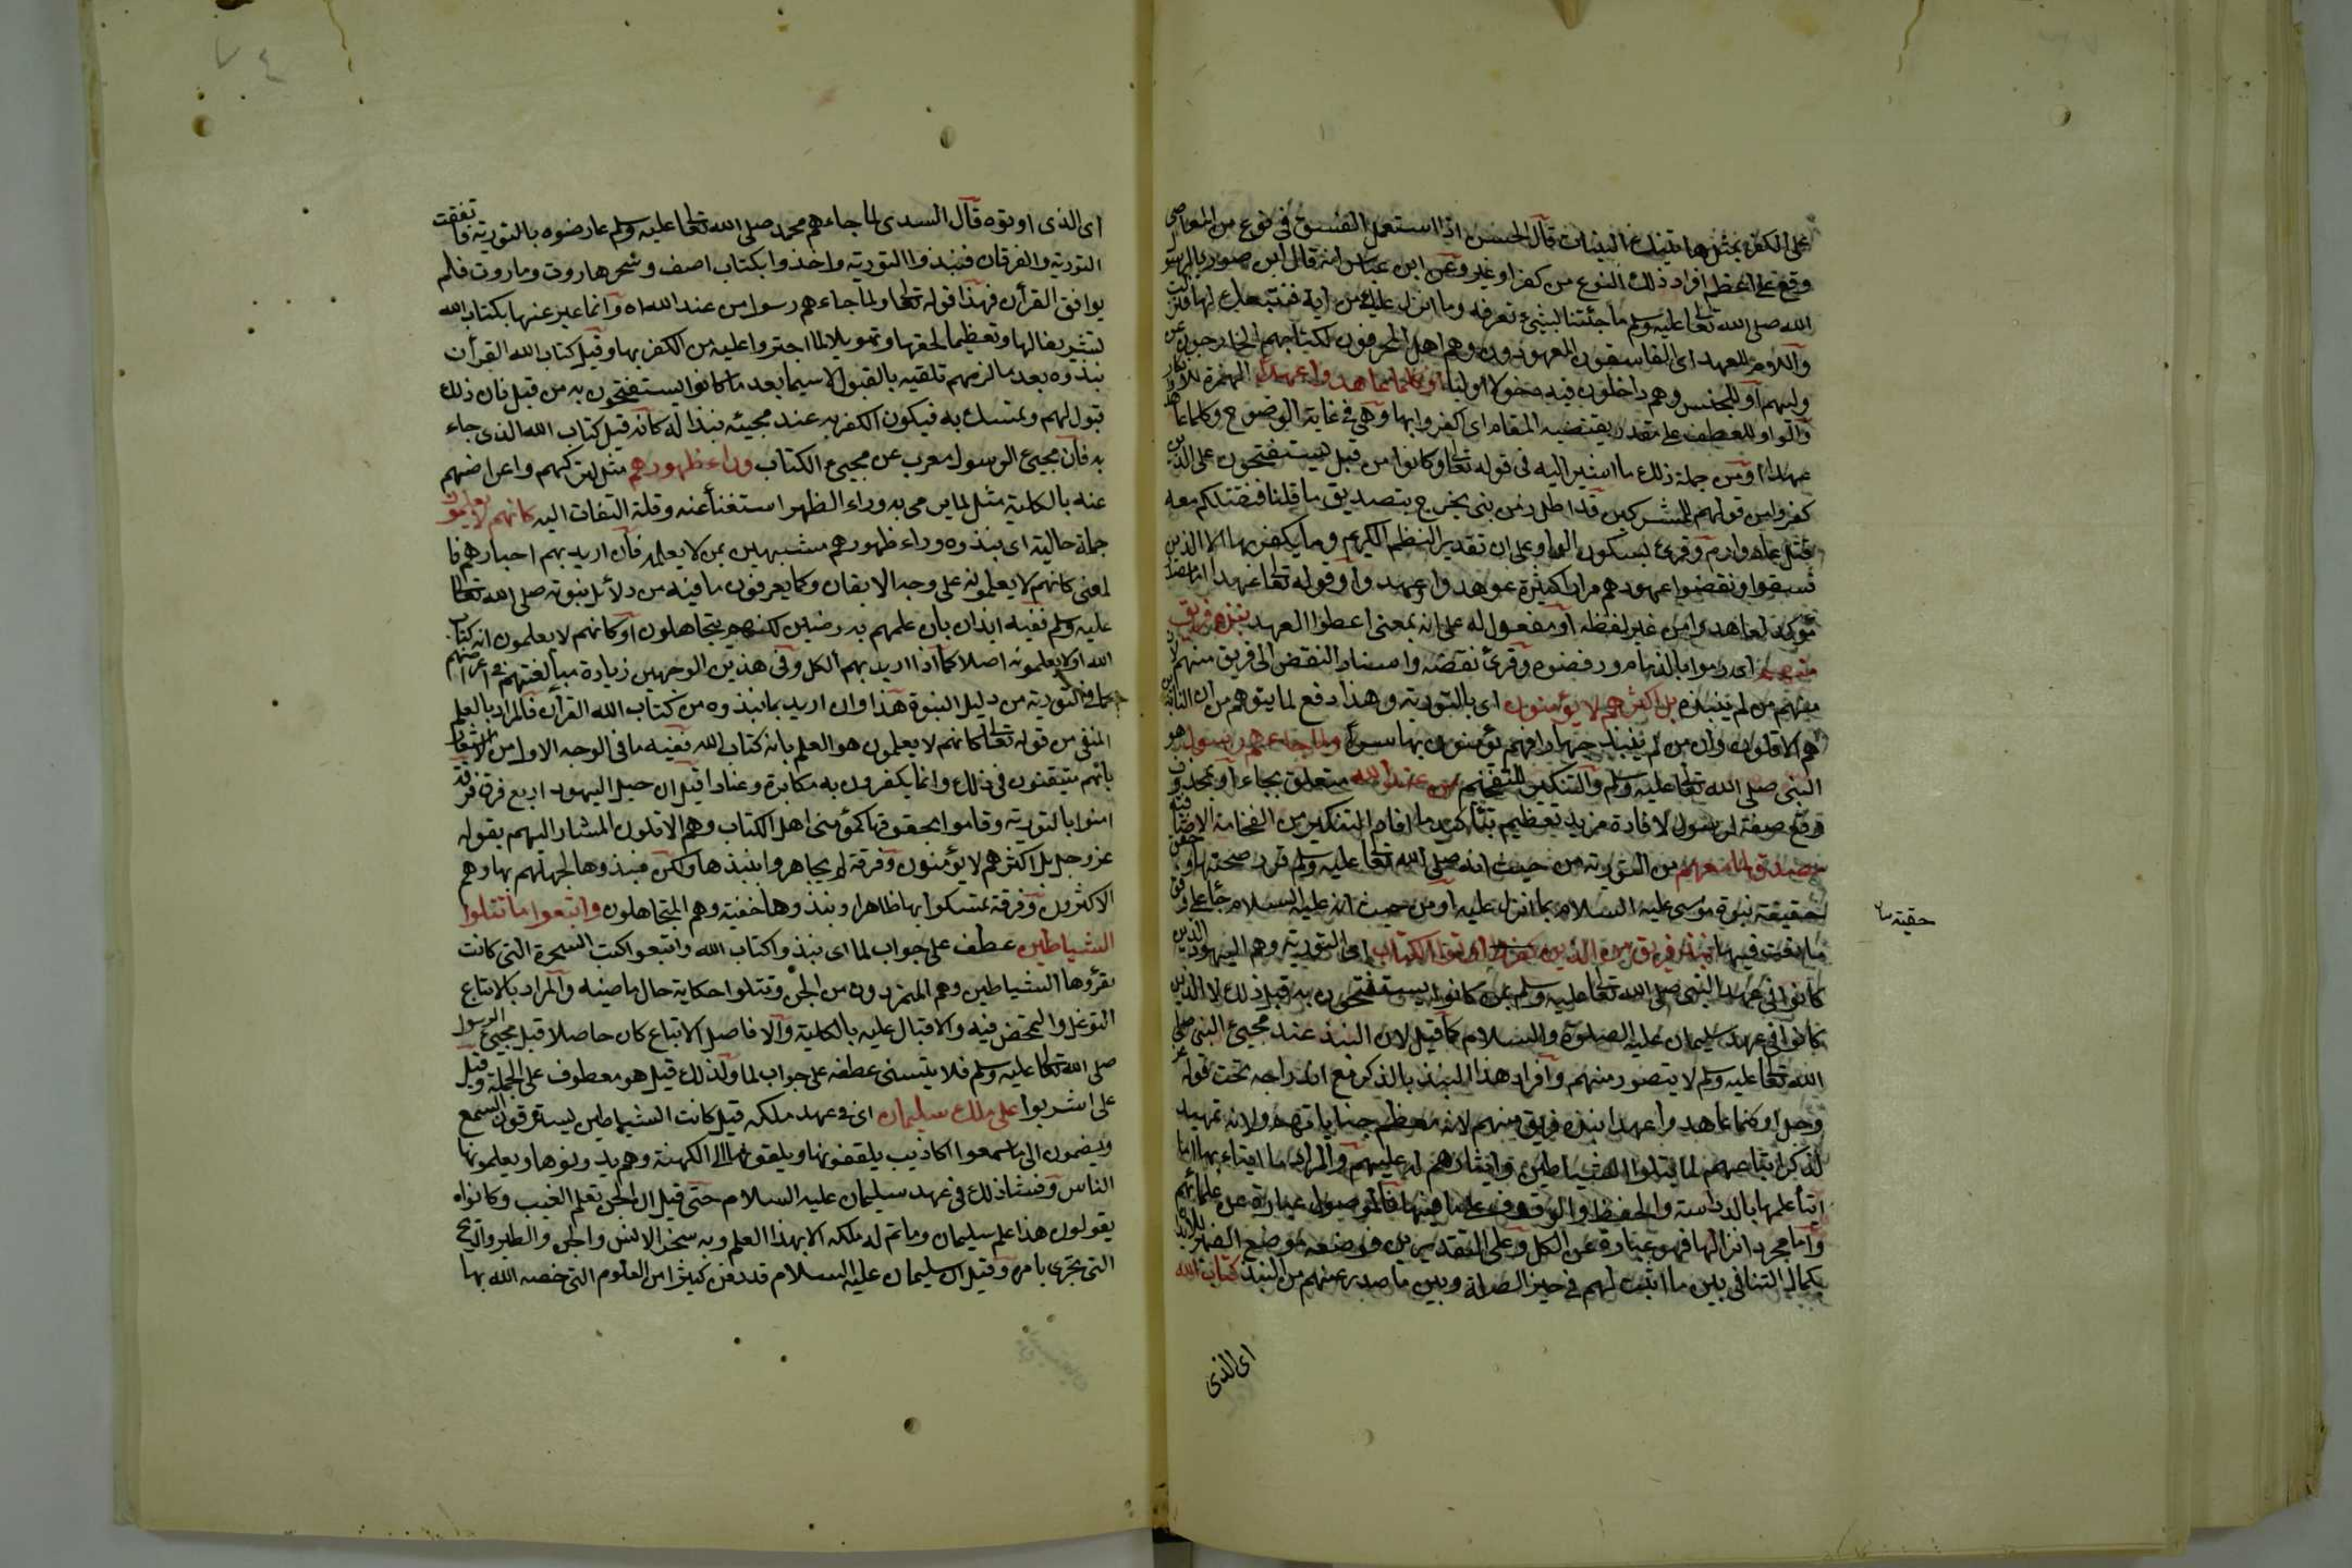 على الكفر بمثل هاتيك البينات قال الحسن اذا استعمل الفسق فى نوع من المعاصى
وقع على اعظم افراد ذلك النوع من كفر او غيره وعن ابن عباس انه قال ابن صوريا لرسول
الله صلى الله تعالى عليه وسلم ما جئتنا بشيئ نعرفه وما انزل عليك من اية فنتبعك لها فنزلت
واللام للعهد اى الفاسقون المعهودون وهم اهل الكتاب المحرفون لكتابهم الخارجون عن
دينهم او للجنس وهم داخلون فيه دخولا اوليا اوكلما عاهدوا عهدا الهمزة للانكار
والواو للعطف على مقدر يقتضيه المقام اى اكفروا بها وهى فى غاية الوضوح وكلما عاهدوا
عهدا ومن جملة ذلك ما اشير اليه فى قوله تعالى وكانوا من قبل يستفتحون على الذين
كفروا من قولهم للمشركين قد اظل زمن نبى يخرج بتصديق ما قلنا فنقتلكم معه
قتل عاد وارم وقرئ بسكون الواو على ان تقدير النظم الكريم وما يكفر بها الا الذين
فسقوا او نقضوا عهودهم مرارا كثيرة وقرئ عوهدوا وعهدوا وقوله تعالى عهدا اما مصدر
مؤكد لعاهدوا من غير لفظه او مفعول له على انه بمعنى اعطوا العهد نبذه فريق
منهم اى رموا بالذمام ورفضوه وقرئ نقضه واسناد النقض الى فريق منهم لان
منهم من لم ينبذه بل اكثرهم لا يؤمنون اى بالتورية وهذا دفع لما يتوهم من ان النابذين
هم الاقلون وان من لم ينبذ جهارا فهم يؤمنون بها سرا ولما جاءهم رسول هو
النبى صلى الله تعالى عليه وسلم والتنكير للتفخيم من عند الله متعلق بجاء او بمحذوف
وقع صفة لرسول لافادة مزيد تعظيمه بتأكيد ما افاده التنكير من الفخامة الاضافية
مصدق لما معهم من التورية من حيث انه صلى الله تعالى عليه وسلم قرر صحتها وحقق
حقيقة نبوة موسى عليه السلام بما انزل عليه او من حيث انه عليه السلام جاء على وفق
حقية
ما نعت فيها نبذ فريق من الذين اوتوا الكتاب اى التورية وهم اليهود الذين
كانوا فى عهد النبى صلى الله تعالى عليه وسلم ممن كانوا يستفتحون به قبل ذلك لا الذين
كانوا فى عهد سليمان عليه الصلوة والسلام كما قيل لان النبذ عند مجيئ النبى صلى
الله تعالى عليه وسلم لا يتصور منهم وافراد هذا النبذ بالذكر مع اندراجه تحت قوله عز
وجل اوكلما عاهدوا عهدا نبذه فريق منهم لانه معظم جناياتهم ولانه تمهيد
لذكر اتباعهم لما تتلوا الشياطين وايثارهم له عليها والمراد بايتائها اما
ايتاء علمها بالدراسة والحفظ والوقوف على ما فيها فالموصول عبارة عن علمائهم
واما مجرد انزالها فهو عبارة عن الكل وعلى التقديرين فوضعه موضع الضمير للايذان
بكمال التنافى بين ما اثبت لهم فى حيز الصلة وبين ما صدر عنهم من النبذ كتاب الله
اى الذى
اى الذى اوتوه قال السدى لما جاءهم محمد صلى الله تعالى عليه وسلم عارضوه بالتورية فاتفقت
التورية والفرقان فنبذوا التورية واخذوا بكتاب اصف وسحر هاروت وماروت فلم
يوافق القرأن فهذا قوله تعالى ولما جاءهم رسول من عند الله اه وانما عبر عنها بكتاب الله
تشريفا لها وتعظيما لحقها وتهويلا لما اجترءوا عليه من الكفر بها وقيل كتاب الله القرأن
نبذوه بعد ما لزمهم تلقيه بالقبول لا سيما بعد ما كانوا يستفتحون به من قبل فان ذلك
قبول لهم وتمسك به فيكون الكفر به عند مجيئه نبذا له كانه قيل كتاب الله الذى جاء
به فان مجيئ الرسول معرب عن مجيئ الكتاب وراء ظهورهم مثل لتركهم واعراضهم
عنه بالكلية مثل لما يرمى به وراء الظهر استغناء عنه وقلة التفات اليه كانهم لا يعلمون
جملة حالية اى نبذوه وراء ظهورهم مشبهين بمن لا يعلمه فان اريد بهم احبارهم فا
لمعنى كانهم لا يعلمونه على وجه الايقان ولا يعرفون ما فيه من دلائل نبوته صلى الله تعالى
عليه وسلم ففيه ايذان بان علمهم به رصين لكنهم يتجاهلون او كانهم لا يعلمون انه كتاب
الله او لا يعلمونه اصلا كما اذا اريد بهم الكل وفى هذين الوجهين زيادة مبالغتهم فى اعراضهم
عما فى التورية من دليل النبوة هذا وان اريد بما نبذوه من كتاب الله القرأن فالمراد بالعلم
المنفى من قوله تعالى كانهم لا يعلمون هو العلم بانه كتاب الله ففيه ما فى الوجه الاول من الاشعار
بانهم متيقنون فى ذلك وانما يكفرون به مكابرة وعنادا قيل ان جيل اليهود اربع فرق فرقة
امنوا بالتورية وقاموا بحقوقها كمؤمنى اهل الكتاب وهم الاقلون المشار اليهم بقوله
عز وجل بل اكثرهم لا يؤمنون وفرقة لم يجاهروا بنبذها ولكن نبذوها لجهلهم بها وهم
الاكثرون وفرقة تمسكوا بها ظاهرا ونبذوها خفية وهم المتجاهلون واتبعوا ما تتلوا
الشياطين عطف على جواب لما اى نبذوا كتاب الله واتبعوا كتب السحرة التى كانت
تقرؤها الشياطين وهم المتمردون من الجن وتتلوا حكاية حال ماضيه والمراد بالاتباع
التوغل والتمحض فيه والاقبال عليه بالكلية والا فاصل الاتباع كان حاصلا قبل مجيئ الرسول
صلى الله تعالى عليه وسلم فلا يتسنى عطفه على جواب لما ولذلك قيل هو معطوف على الجملة وقيل
على اشربوا على ملك سليمان اى فى عهد ملكه قيل كانت الشياطين يسترقون السمع
ويضمون الى ما سمعوا اكاذيب يلفقونها ويلقونها الى الكهنة وهم يدونوها ويعلمونها
الناس وفشا ذلك فى عهد سليمان عليه السلام حتى قيل ان الجن تعلم الغيب وكانوا
يقولون هذا علم سليمان وما تم له ملكه الا بهذا العلم وبه سخر الانس والجن والطير والريح
التى تجرى بامره وقيل ان سليمان عليه السلام قد دفن كثيرا من العلوم التى خصه الله بها